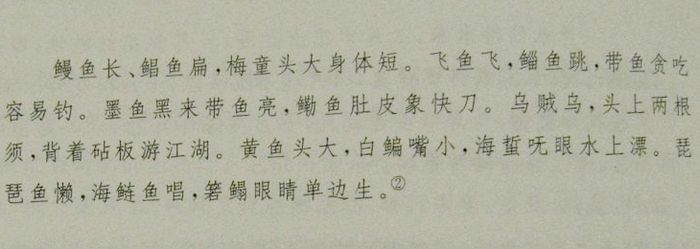 鳗鱼长、鲳鱼扁,梅童头大身体短。飞鱼飞,鲻鱼跳,带鱼贪吃
容易钓。墨鱼黑来带鱼亮,鳓鱼肚皮象快刀。乌贼乌,头上两根
须,背着砧板游江湖。黄鱼头大,白鳊嘴小,海蜇呒眼水上漂。琵
琶鱼懒,海鲢鱼唱,箬鳎眼睛单边生。②